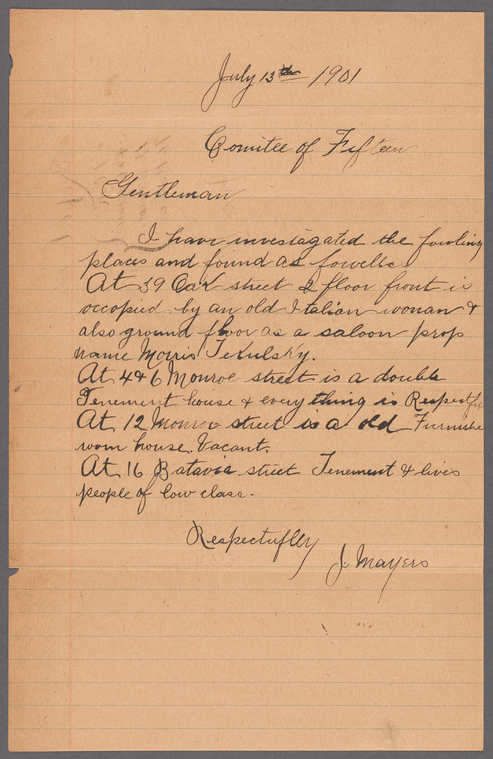 July 13th 1901
Comitee of Fifteen
Gentleman
I have investagated the fowling
places and found as fowells
At 39 Oak street 2 floor front is
occopied by an old Italian woman &
also ground floor as a saloon prop
name Morris
At 4 & 6 Monroe street is a double
Tenement house & every thing is Respectful
At 12 Monroe street is a old Furnishe
room house. Vacant.
At 16 Batavia street Tenement & lives
people of low class.
Respectuflly
J. Mayers